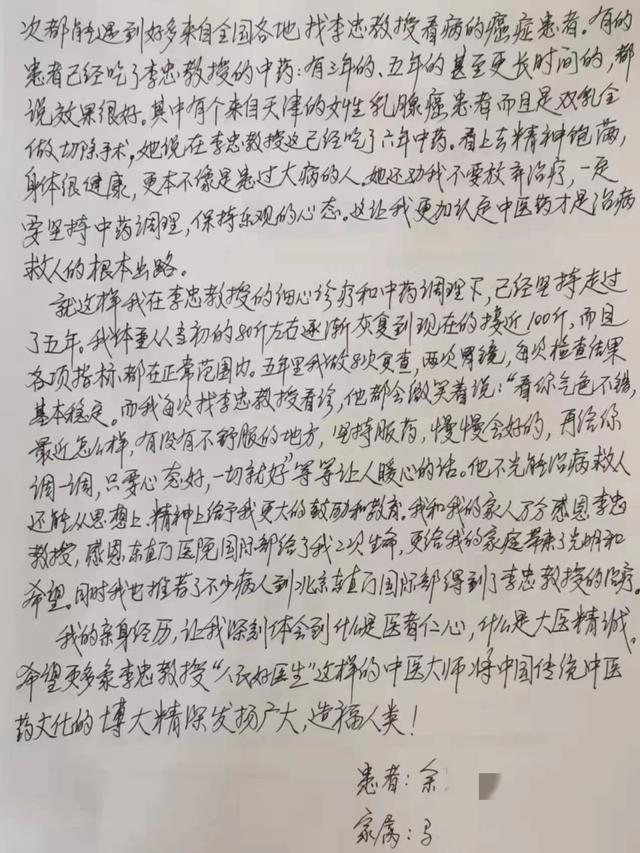 次都能遇到好多来自全国各地找李忠教授看病的癌症患者。有的
患者已经吃了李忠教授的中药：有三年的、五年的甚至更长时间的，都
说效果很好。其中有个来自天津的女性乳腺癌患者而且是双乳全
做切除手术，她说在李忠教授这已经吃了六年中药。看上去精神饱满，
身体很健康，更本不像是患过大病的人。她还劝我不要放弃治疗，一定
要坚持中药调理，保持乐观的心态。这让我更加认定中医药才是治病
救人的根本出路。
就这样我在李忠教授的细心诊疗和中药调理下，已经坚持走过
了五年。我体重从当初的80斤左右逐渐恢复到现在的接近100斤，而且
各项指标都在正常范围内。五年里我做8次复查，两次胃镜，每次检查结果
基本稳定。而我每次找李忠教授看诊，他都会微笑着说：“看你气色不错，
最近怎么样，有没有不舒服的地方，坚持服药，慢慢会好的，再给你
调一调，只要心态好，一切就好”等等让人暖心的话。他不光能治病救人
还能从思想上、精神上给予我更大的鼓励和教育。我和我的家人万分感恩李忠
教授，感恩东直门医院国际部给了我二次生命，更给我的家庭带来了光明和
希望。同时我也推荐了不少病人到北京东直门国际部得到了李忠教授的治疗。
我的亲身经历，让我深刻体会到什么是医者仁心，什么是大医精诚。
希望更多象李忠教授“人民好医生”这样的中医大师将中国传统中医
药文化的博大精深发扬广大，造福人类！
患者：余
家属：马